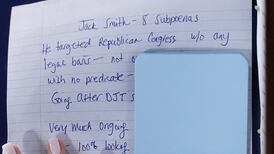 Jack Smith - 8 Subpoenas
He targeted Republican Congress w/o any
legal basis — not
with no predicate —
Going After DJT
Very Much Ongoing
- 100% looking